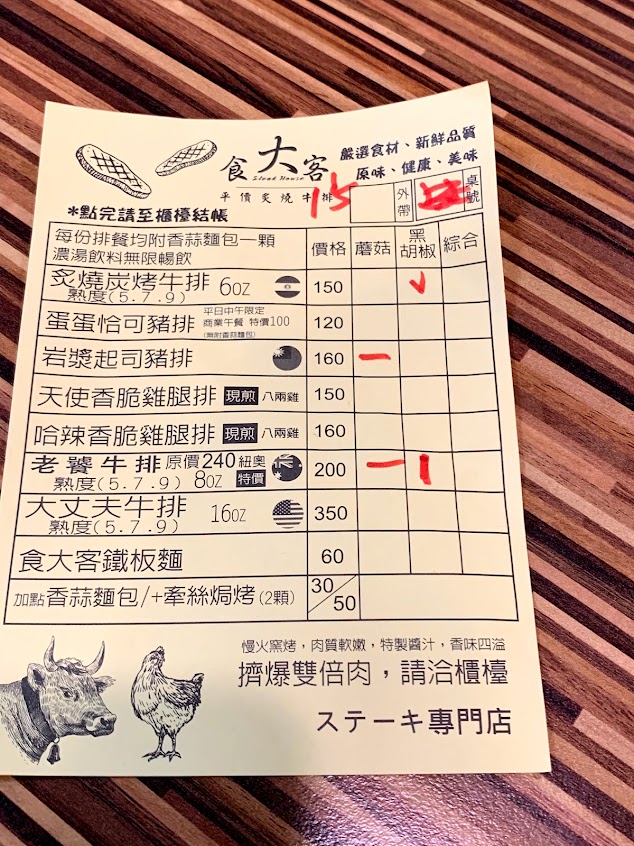 嚴選食材、新鮮品質
食大客
Steak House
原味、健康、美味
平價炙燒牛排
15
外帶
桌號
*點完請至櫃檯結帳
每份排餐均附香蒜麵包一顆
濃湯飲料無限暢飲
價格 蘑菇 黑胡椒 綜合
炙燒炭烤牛排 6oz 150 ✓
熟度(5.7.9)
蛋蛋恰可豬排 平日中午限定 商業午餐 特價100 (無附香蒜麵包) 120
岩漿起司豬排 160 一
天使香脆雞腿排 現煎 八兩雞 150
哈辣香脆雞腿排 現煎 八兩雞 160
老饕牛排 原價240 紐奧 200 一 1
熟度(5.7.9) 8oz 特價
大丈夫牛排 16oz 350
熟度(5.7.9)
食大客鐵板麵 60
加點香蒜麵包/+牽絲焗烤(2顆) 30/50
慢火窯烤，肉質軟嫩，特製醬汁，香味四溢
擠爆雙倍肉，請洽櫃檯
ステーキ專門店